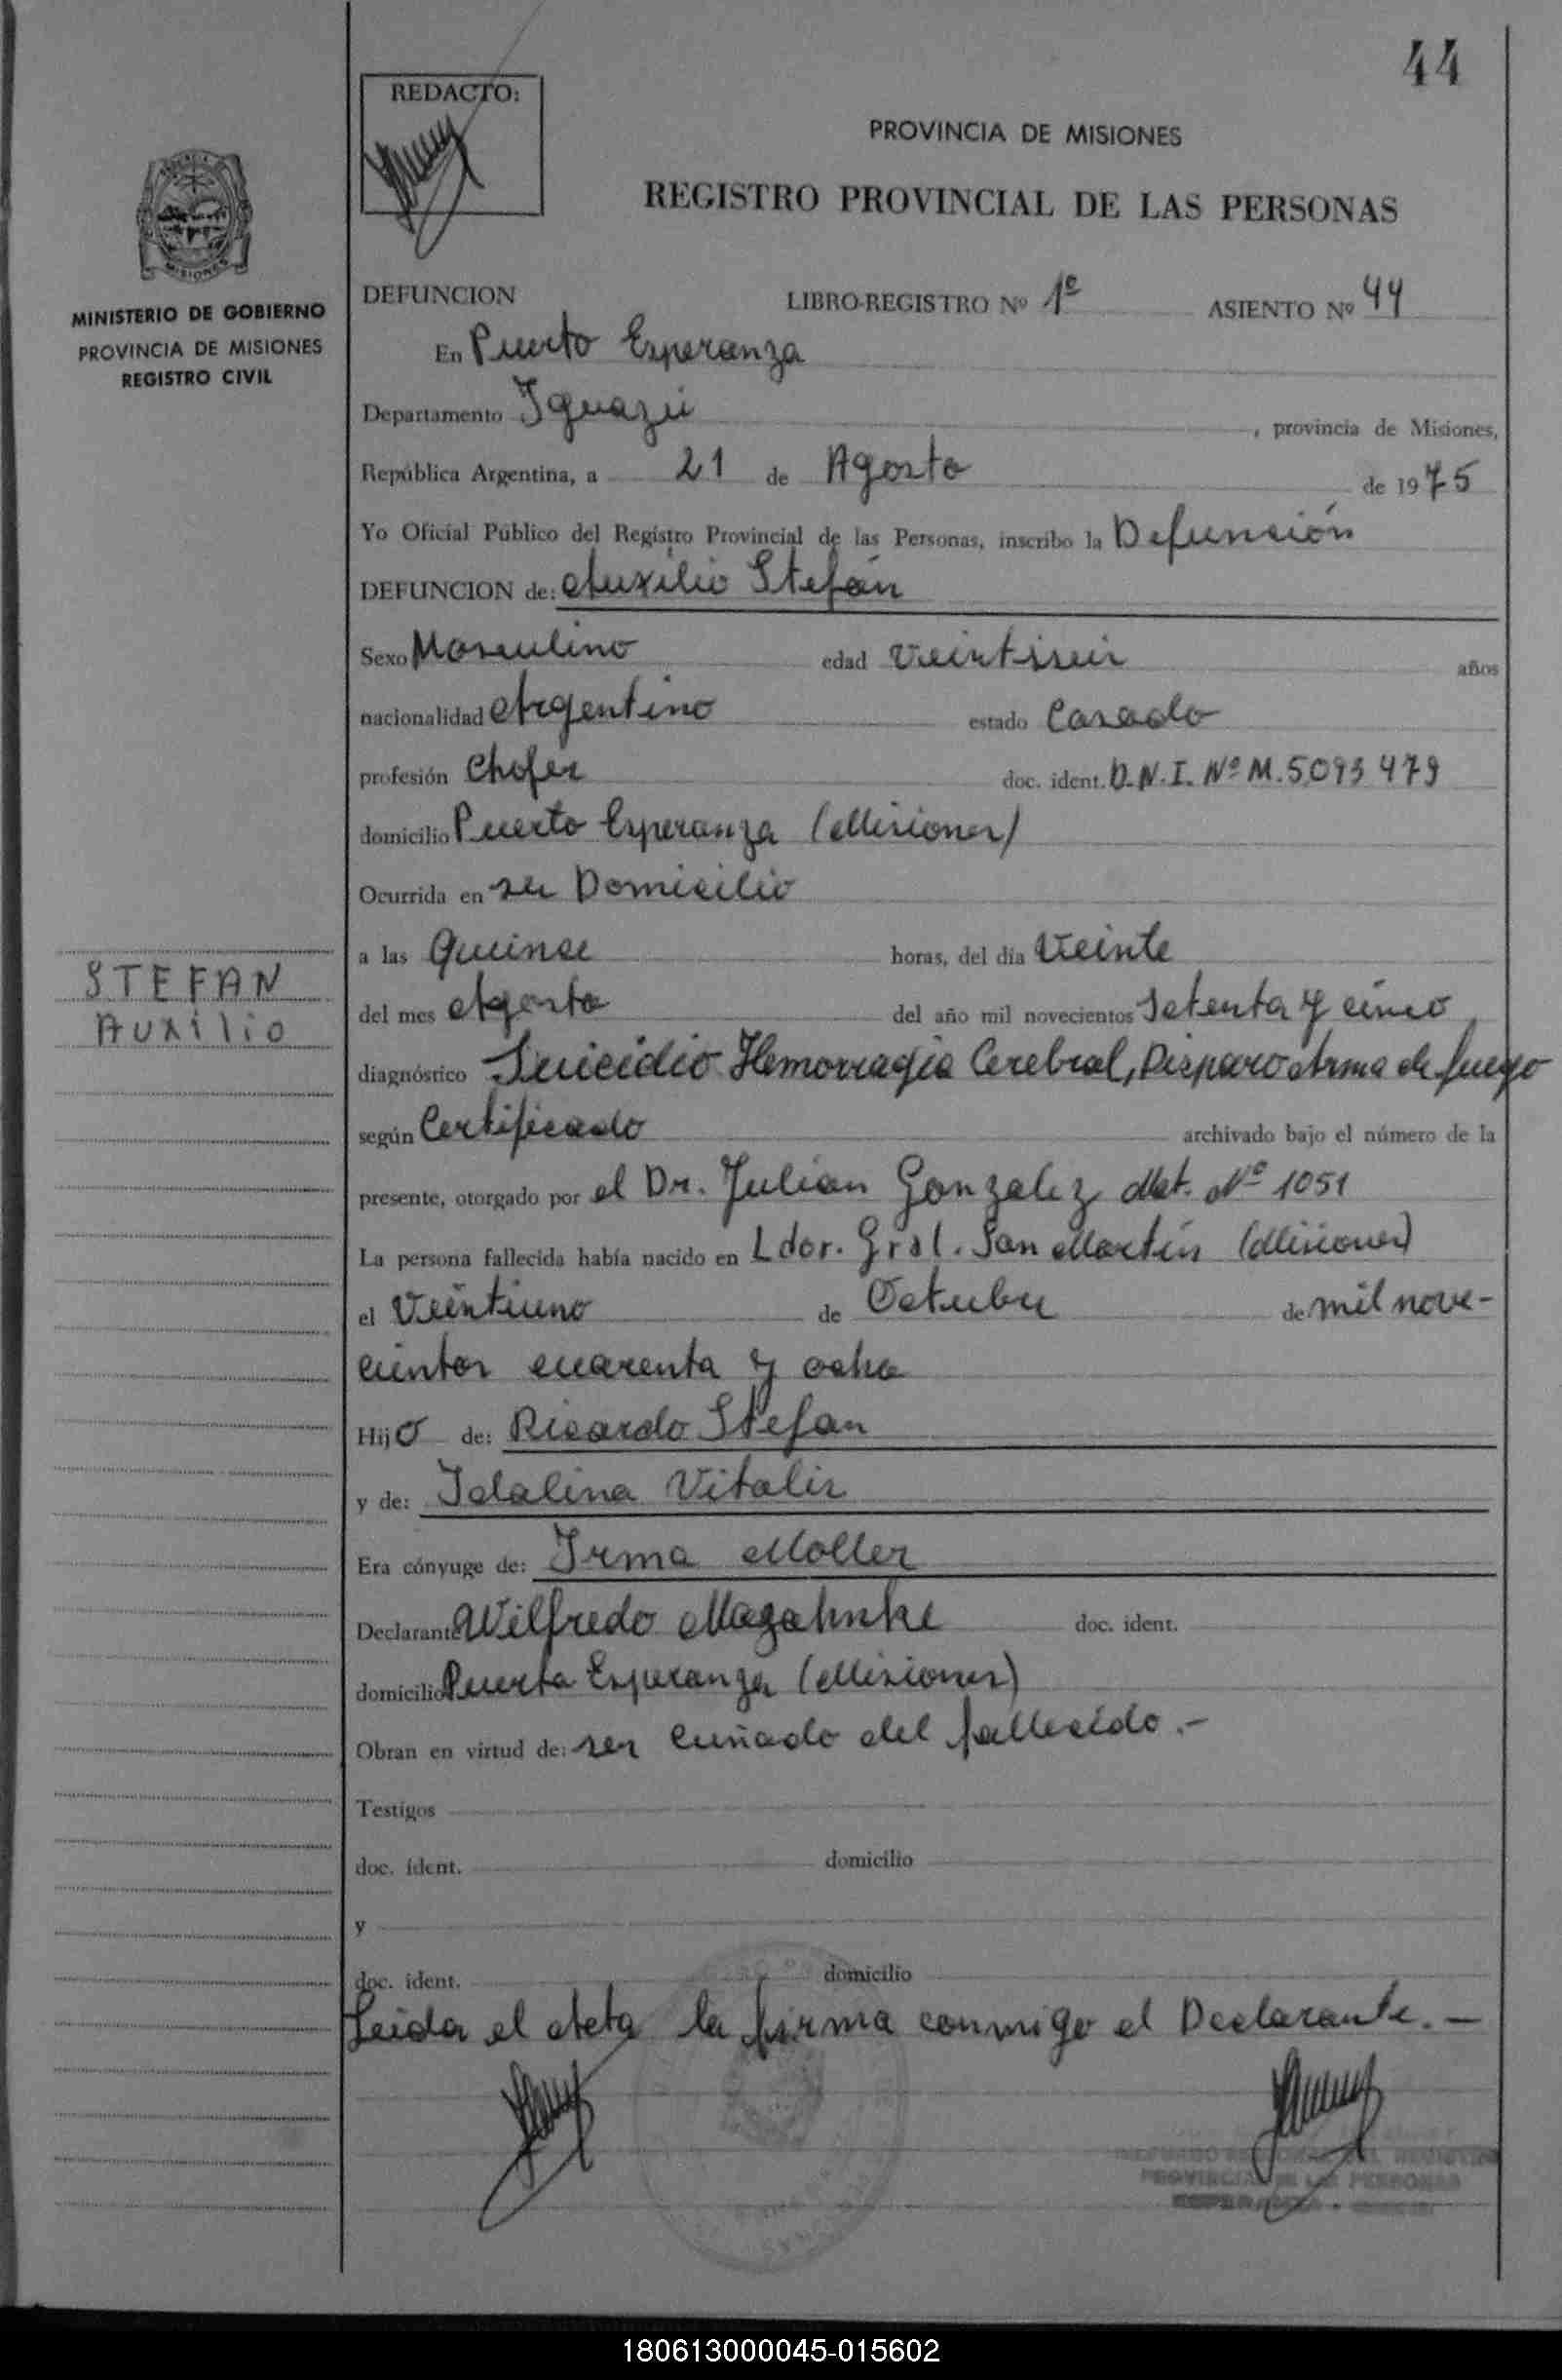 44
REDACTO:
PROVINCIA DE MISIONES
REGISTRO PROVINCIAL DE LAS PERSONAS
MISIONES
MINISTERIO DE GOBIERNO
PROVINCIA DE MISIONES
REGISTRO CIVIL
DEFUNCION LIBRO-REGISTRO Nº 1º ASIENTO Nº 44
En Puerto Esperanza
Departamento Iguazú, provincia de Misiones,
República Argentina, a 21 de Agosto de 1975
Yo Oficial Público del Registro Provincial de las Personas, inscribo la Defunción
DEFUNCION de: Auxilio Stefan
Sexo Masculino edad Veintiseis años
nacionalidad Argentino estado Casado
profesión Chofer doc. ident. D.N.I. Nº M. 5.093479
domicilio Puerto Esperanza (Misiones)
Ocurrida en su Domicilio
a las Quince horas, del día Veinte
del mes Agosto del año mil novecientos Setenta y cinco
diagnóstico Suicidio Hemorragia Cerebral, Disparo Arma de fuego
según Certificado archivado bajo el número de la
presente, otorgado por el Dr. Julian Gonzalez Mat. Nº 1051
La persona fallecida había nacido en Ldor. Gral. San Martín (Misiones)
el Veintiuno de Octubre de mil nove-
cientos cuarenta y ocho
Hijo de: Ricardo Stefan
y de: Idalina Vitalis
Era cónyuge de: Irma Moller
Declarante Wilfredo Magahnke doc. ident.
domicilio Puerto Esperanza (Misiones)
Obran en virtud de: ser cuñado del fallecido.-
Testigos
doc. ident. domicilio
y
doc. ident. domicilio
Leida el Acta la firma conmigo el Declarante.-
STEFAN
Auxilio
PROVINCIAL DE LAS PERSONAS
180613000045-015602